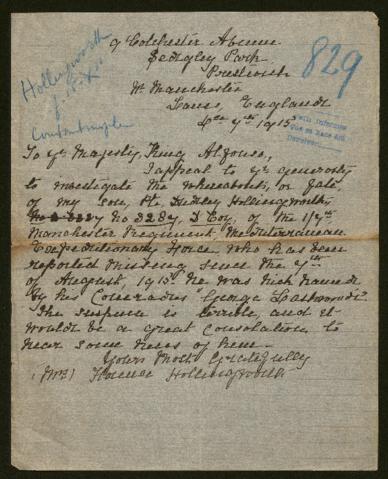 9 Colchester Avenue
Sedgley Park
Prestwich
Nr Manchester
Lancs, England
7th 1915
829
Hollingworth
Constantinople
To Yr Majesty, King Alfonso,
I appeal to yr generosity
to investigate the whereabouts, or fate,
of my son, Pte. Hollingworth,
No 3284, D Coy, of the 1/7th
Manchester Regiment, Mediterranean
Expeditionary Force who has been
reported missing since the 7th
of August, 1915. He was nick named
by his Comrades "George
The suspense is terrible, and it
would be a great consolation to
hear some news of him.
Yours Most Gratefully
(Mrs) Florence Hollingworth